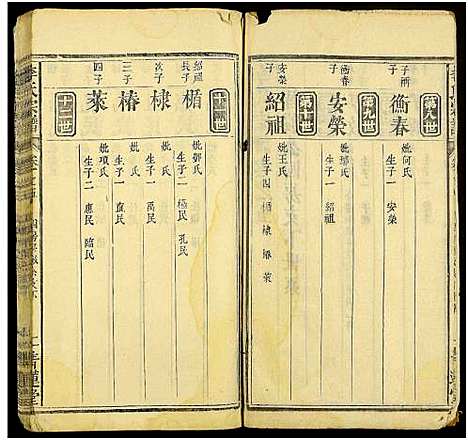 第八世
衡春
妣何氏
生子一 安榮
第九世
衡春子
安榮
生子一 紹祖
第十世
安榮子
紹祖
妣王氏
生子四 楯 棣 椿 萊
十一世
紹祖長子
楯
妣鄧氏
生子二 極民 孔民
次子
棣
妣 氏
生子一 萬民
三子
椿
妣 氏
生子一 直民
四子
萊
妣項氏
生子二 惠民 臨民
十二世
李氏宗譜
青蓮堂